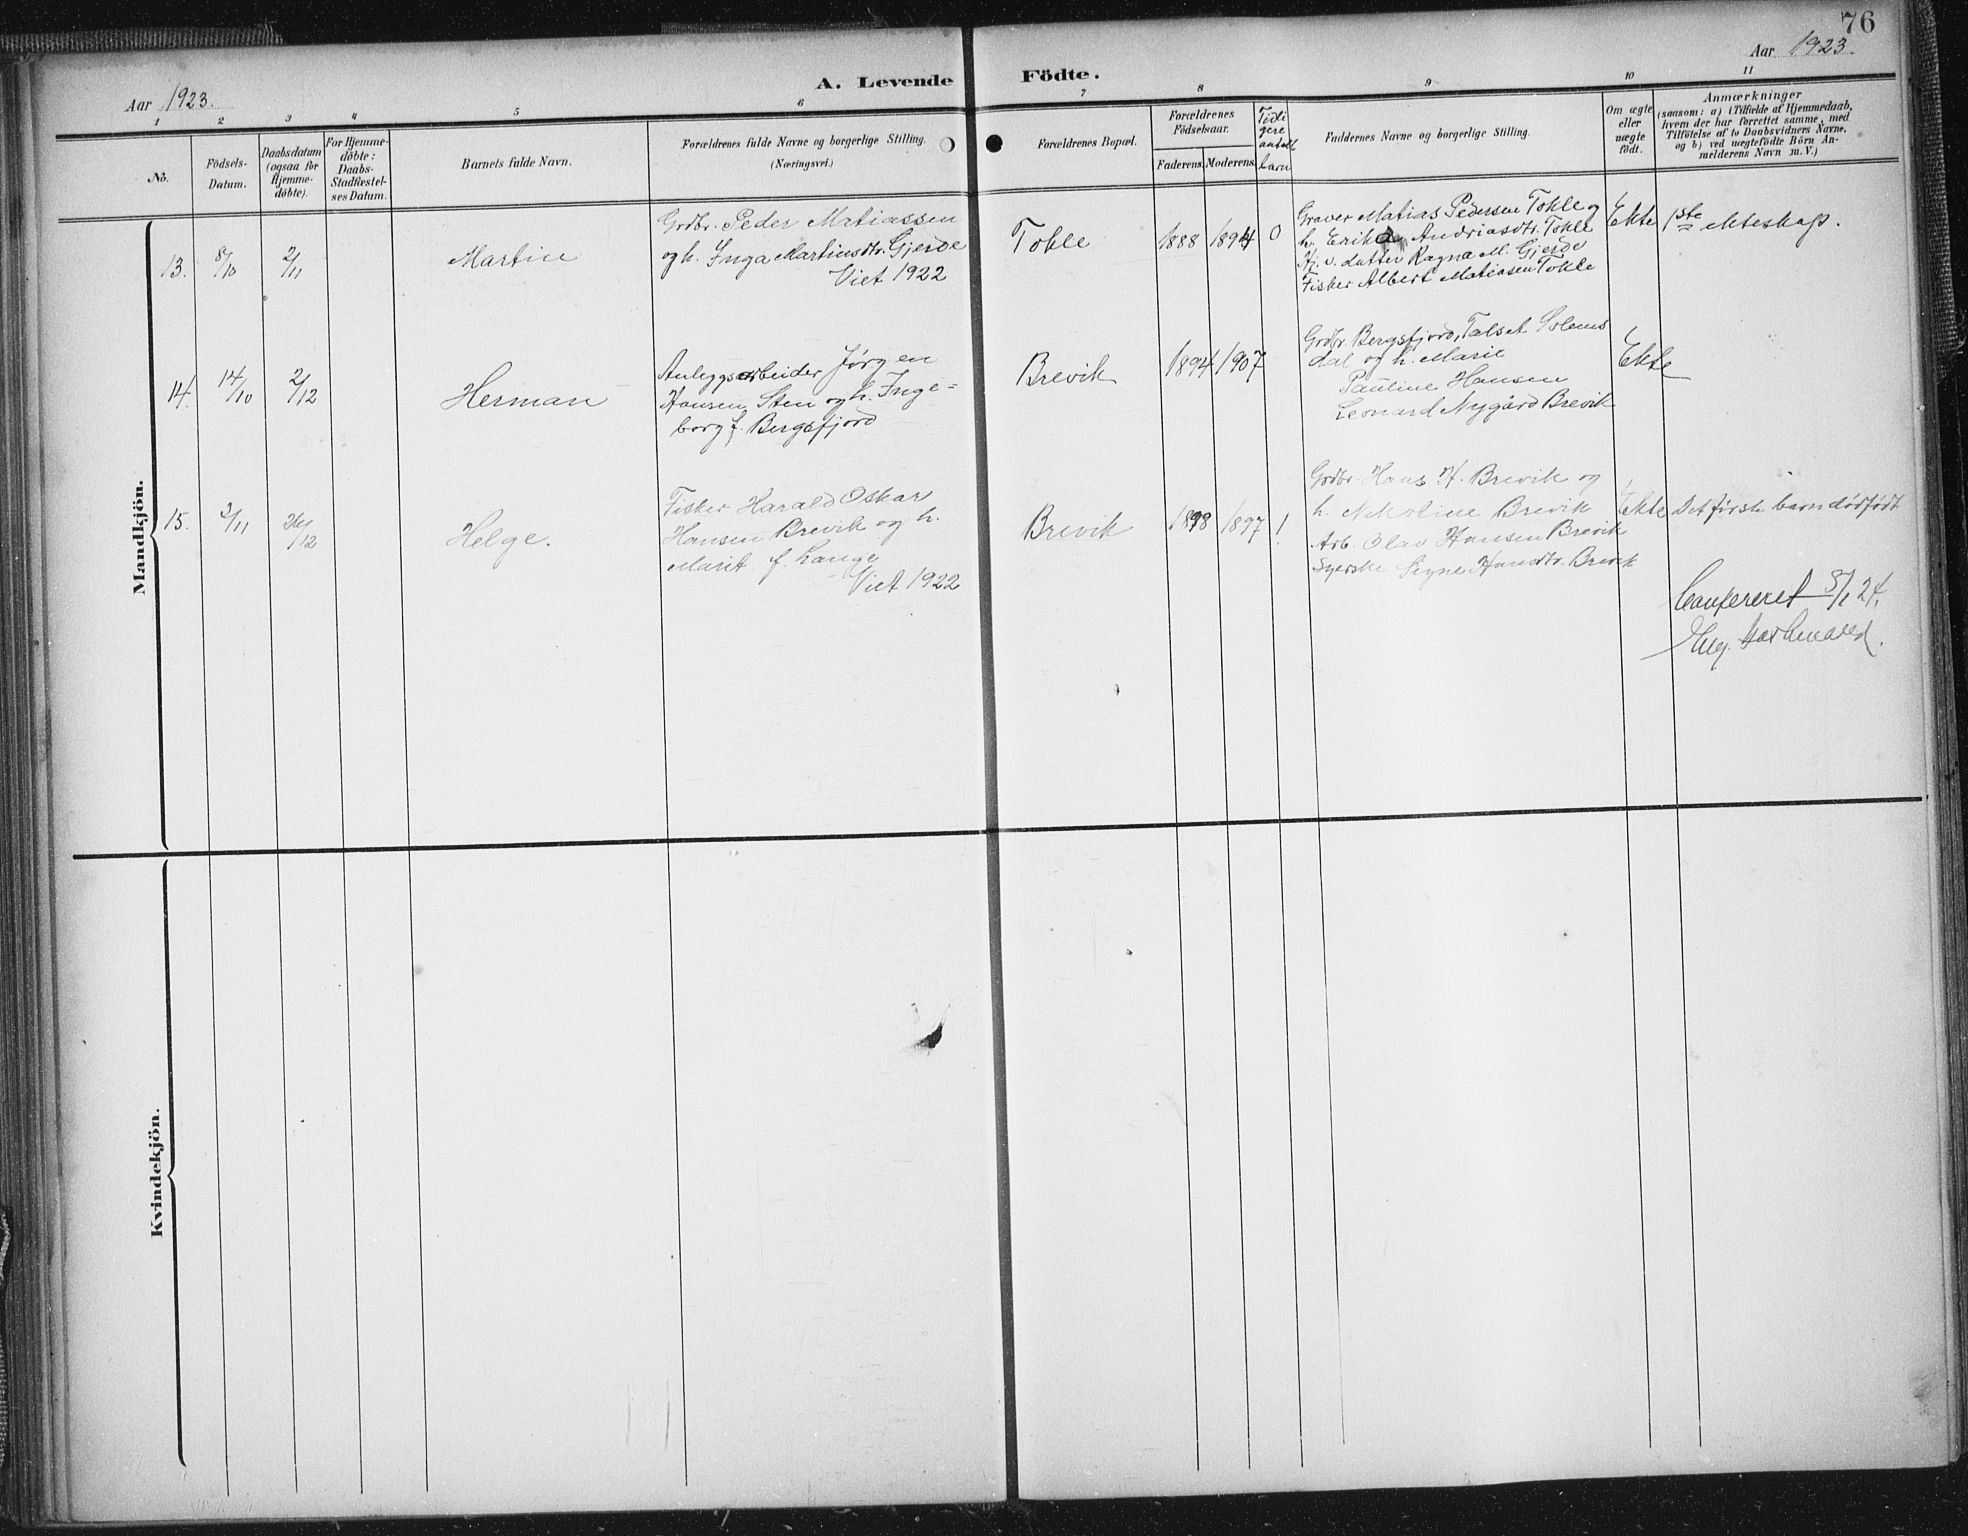 76
Aar 1923.
A. Levende Födte.
Aar 1923.
1 2 3 4 5 6 7 8 9 10 11
No.
Födsels-
Datum.
Daabsdatum
(ogsaa for
Hjemme-
döbte).
For Hjemme-
döbte:
Daabs-
Stadfæstel-
ses Datum.
Barnets fulde Navn.
Forældrenes fulde Navne og borgerlige Stilling.
(Næringsvei.)
Forældrenes Bopæl.
Forældrenes
Födselsaar.
Faderens. Moderens.
Tidl
igere
antall
barn
Faddernes Navne og borgerlige Stilling.
Om ægte
eller
uægte
födt.
Anmærkninger
(saasom: a) i Tilfælde af Hjemmedaab,
hvem der har forrettet samme, med
Tilföielse af to Daabsvidners Navne,
og b) ved uægtefödte Börn An-
melderens Navn m. V.)
Mandkjön.
13. 8/10 2/11
Martin
Grdbr. Peder Matiassen
og h. Inga Martinsdtr. Gjerde
Viet 1922
Tokle
1888 1894 0
Graver Matias Pedersen Tokle og
h. Erika Andriasdtr. Tokle
Hj. v. datter Ragna M. Gjerde
Fisker Albert Matiasen Tokle
Ekte
1ste ekteskap.
14. 14/10 2/12
Herman
Anleggsarbeider Jørgen
Hansen Sten og h. Inge-
borg f. Bergsfjord
Brevik
1894 1907
Grdbr. Bergsfjord, Talset Solems
dal og h. Marie
Pauline Hansen
Leonard Nygård Brevik
Ekte
15. 2/11 26/12
Helge.
Fisker Harald Oskar
Hansen Brevik og h.
Marit f. Lange
Viet 1922
Brevik
1898 1897 1
Grdbr. Hans H. Brevik og
h. Nikoline Brevik
Arb. Olav Hansen Brevik
Syerske Signe Hansdtr. Brevik
Ekte
Det første barn dødfødt
Confereret 8/1 24.
Kvindekjön.